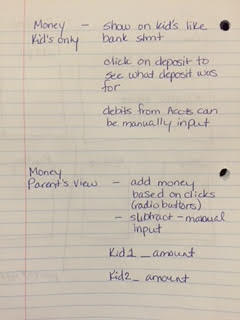 Money - show on kid's like
Kid's only bank stmt
click on deposit to
see what deposit was
for
debits from Accts can
be manually input
Money
Parent's View - add money
based on clicks
(radio buttons)
- subtract - manual
input
Kid1_ amount
Kid2_ amount